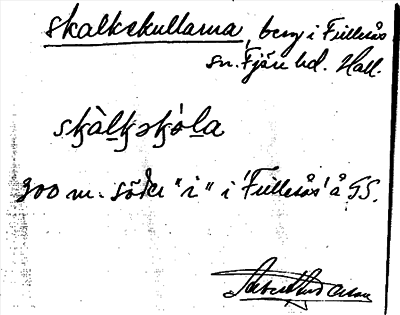 Skalkskullarna, berg i Frillesås
sn. Fjäre hd. Hall.
skàlkskóla
900 m. söder "i" i 'Frillesås' å GS.